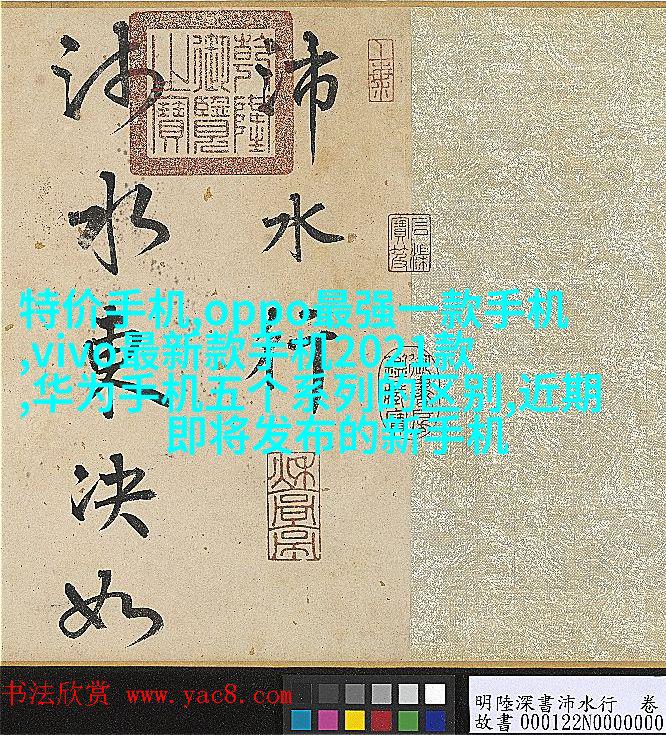 沛水行
沛水東決如
乾隆御覽之寶
石渠寶笈
特价手机,oppo最强一款手机
,vivo最新款手机2021款
,华为手机五个系列的区别,近期
即将发布的新手机
书法欣赏 www.yac8.com
明陸深書沛水行 卷
故書000122N0000000